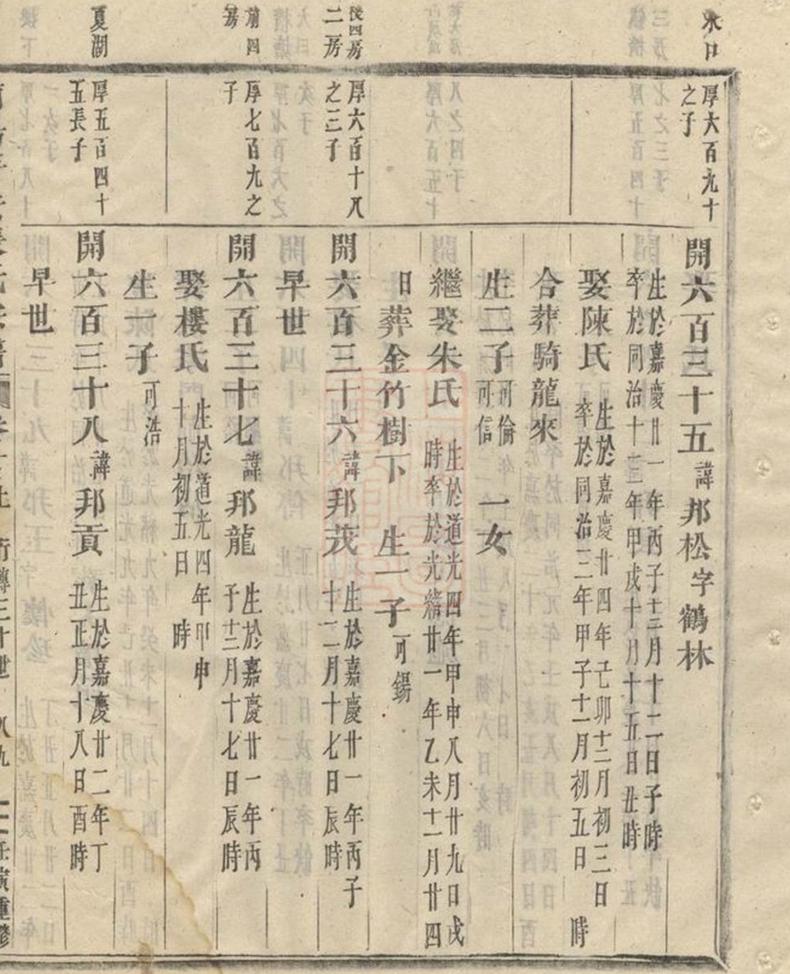 水口
厚六百九十
之子
開六百三十五諱邦松字鶴林
生於嘉慶廿一年丙子十二月十二日子時
卒於同治十三年甲戌十月十五日丑時
娶陳氏
生於嘉慶廿四年己卯十二月初三日時
卒於同治三年甲子十一月初五日
合葬騎龍來
生二子
可倫
可信
一女
繼娶朱氏
生於道光四年甲申八月廿九日戌
時卒於光緒廿一年乙未十一月廿四
日葬金竹樹下 生一子可錫
後四房
二房
厚六百十八
之三子
開六百三十六諱邦茂
生於嘉慶廿一年丙子
十二月十七日辰時
早世
前四
房
厚七百九之
子
開六百三十七諱邦龍
生於嘉慶廿一年丙
子十二月十七日辰時
娶樓氏
生於道光四年甲申
十月初五日時
生一子可浩
夏湖
厚五百四十
五長子
開六百三十八諱邦貢
生於嘉慶廿二年丁
丑正月十八日酉時
早世